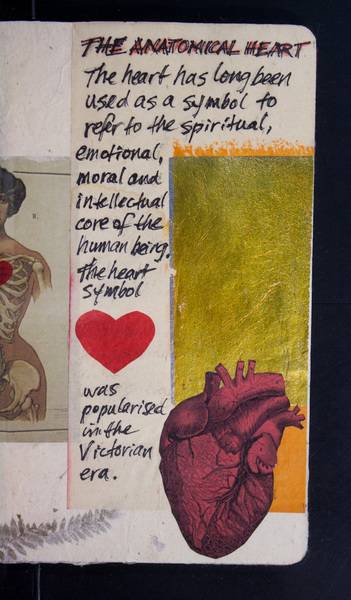 THE ANATOMICAL HEART
The heart has long been
used as a symbol to
refer to the spiritual,
emotional,
moral and
intellectual
core of the
human being.
The heart
symbol
was
popularised
in the
Victorian
era.